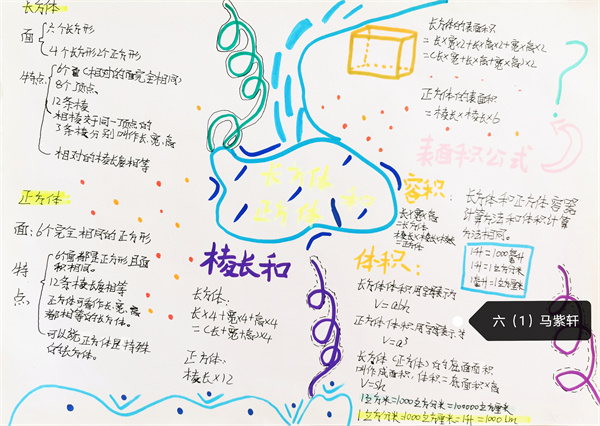 长方体
面
六个长方形
4个长方形2个正方形
特点
6个面(相对的面完全相同)
8个顶点
12条棱
相棱交于同一顶点的
3条棱分别叫作长、宽、高
相对的棱长度相等
正方体
面:6个完全相同的正方形
特点:
6个面都是正方形且面
积相同。
12条棱长度相等
正方体可看作长、宽、高
都相等的长方体。
可以说正方体是特殊
的长方体。
长方体
正方体
棱长和
长方体:
长×4+宽×4+高×4
=(长+宽+高)×4
正方体:
棱长×12
长方体的表面积
=长×宽×2+长×高×2+宽×高×2
=(长×宽+长×高+宽×高)×2
正方体的表面积
=棱长×棱长×6
表面积公式
容积:
长×宽×高
=长方体
棱长×棱长×棱长
=正方体
长方体和正方体容器
计算方法和体积计算
方法相同。
1升=1000毫升
1升=1立方分米
1毫升=1立方厘米
体积:
长方体体积用字母表示为
V=abh
正方体体积用字母表示为
V=a³
长方体(正方体)的底面面积
叫作底面积,体积=底面积×高
V=Sh
1立方米=1000立方分米=1000000立方厘米
1立方分米=1000立方厘米=1升=1000
六(1)马紫轩